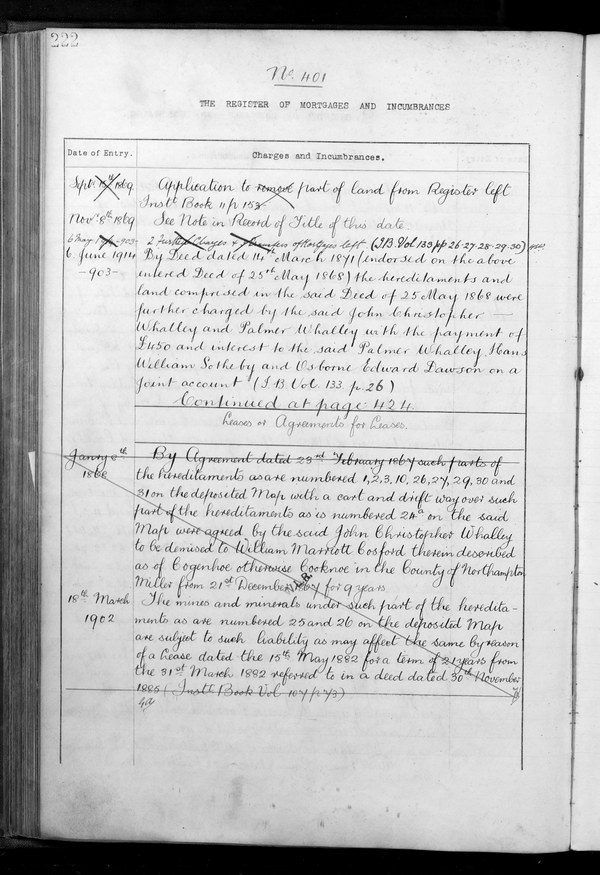 222
No. 401
THE REGISTER OF MORTGAGES AND INCUMBRANCES
Date of Entry.
Charges and Incumbrances.
Sept. 1869
Application to remove part of land from Register left
Inst. Book 11 p 153
Novr. 8th 1869
See Note in Record of Title of this date.
6 May 903
2 Further Charges & Transfers of Mortgages left (I.B. Vol 133 pp 26-27-28-29-30)
6 June 1914
By Deed dated 14th March 1871 (endorsed on the above
-903-
intered Deed of 25th May 1868) the hereditaments and
land comprised in the said Deed of 25 May 1868 were
further charged by the said John Christopher
Whalley and Palmer Whalley with the payment of
£450 and interest to the said Palmer Whalley, Hans
William Sotheby and Osborne Edward Dawson on a
joint account (I B Vol. 133. p. 26)
Continued at page 424.
Leases or Agreements for Leases.
Janry 8th
1868
By Agreement dated 23rd February 1867 such parts of
the hereditaments as are numbered 1, 2, 3, 10, 26, 27, 29, 30 and
31 on the deposited Map with a cart and drift way over such
part of the hereditaments as is numbered 24a on the said
Map were agreed by the said John Christopher Whalley
to be demised to William Marriott Cosford therein described
as of Cogenhoe otherwise Cooknoe in the County of Northampton
Miller from 21st December 1867 for 9 years
18th March
1902
The mines and minerals under such part of the heredita-
ments as are numbered 25 and 26 on the deposited Map
are subject to such liability as may affect the same by reason
of a Lease dated the 15th May 1882 for a term of 21 years from
the 31st March 1882 referred to in a deed dated 30th November
1885 (Instt. Book Vol 107 p 73)